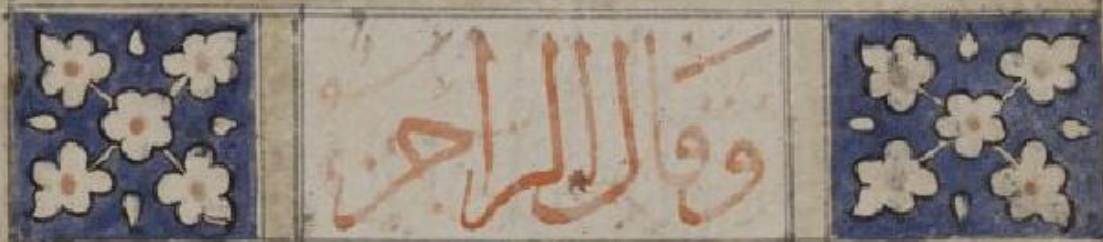 وَقَالَ الراجز